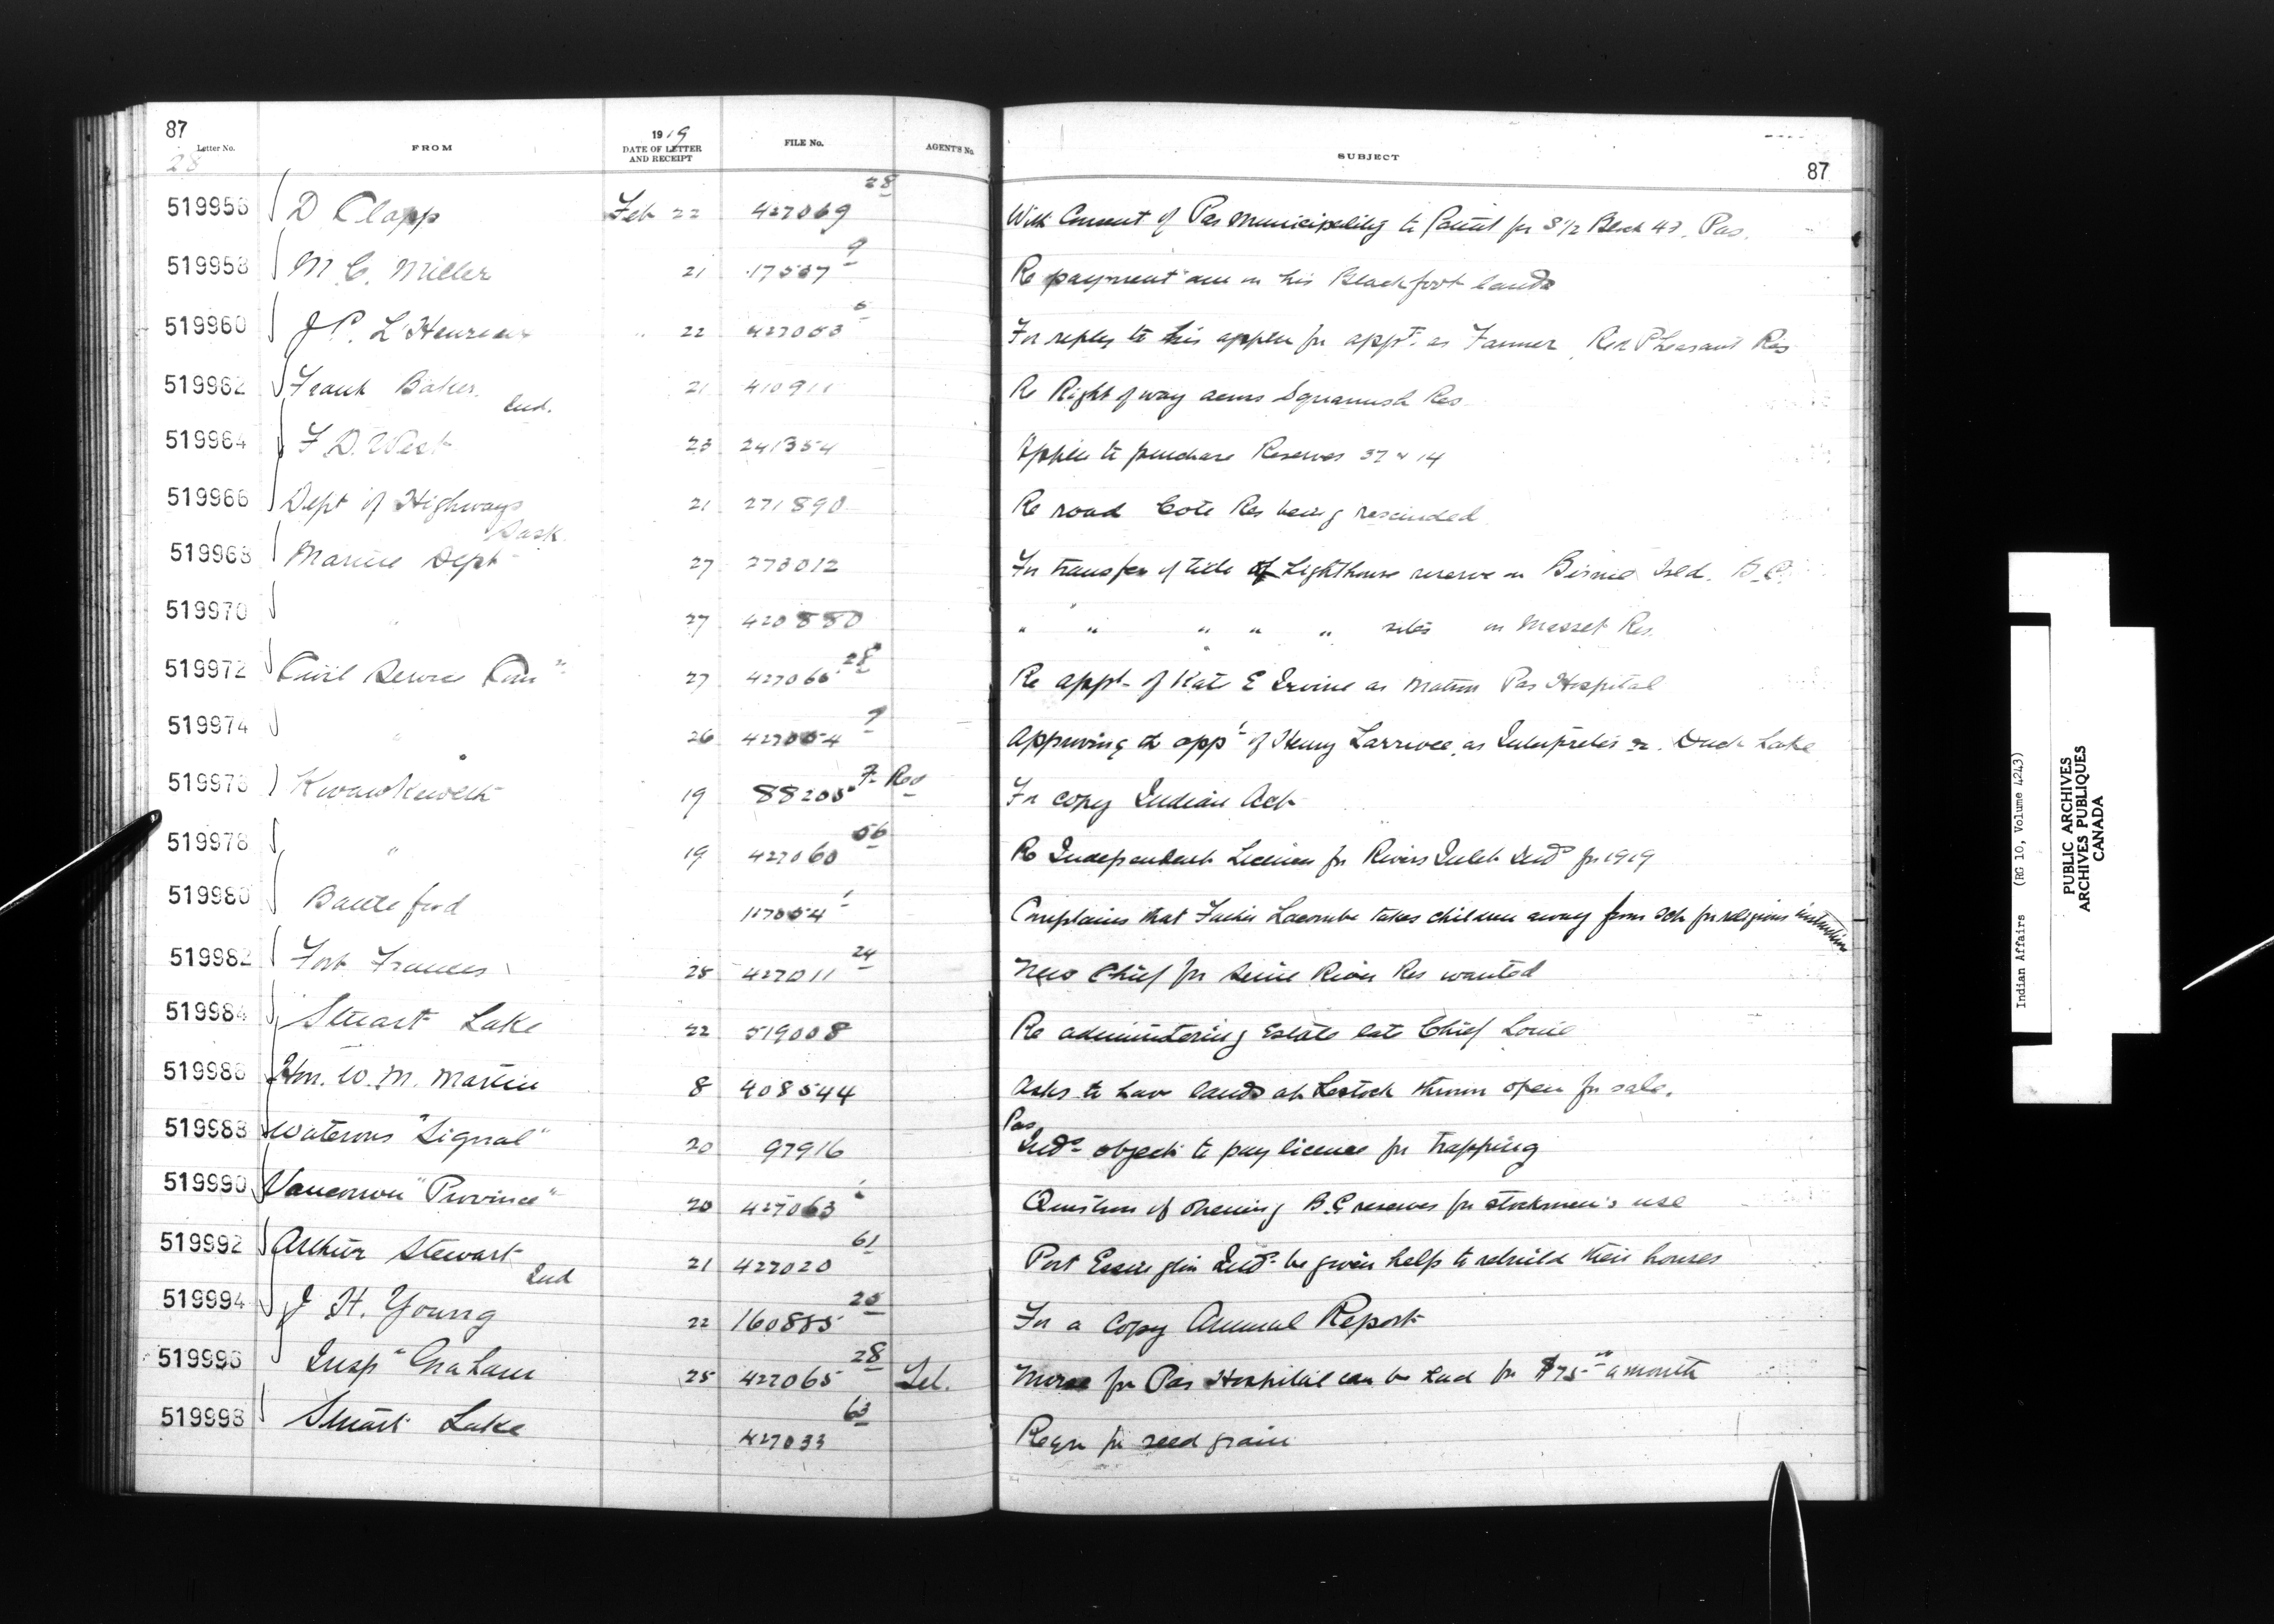 87
Letter No. FROM 1919 DATE OF LETTER AND RECEIPT FILE No. AGENT'S No. SUBJECT 87
28
519956 D Clapp Feb 22 427069 28 With Consent of Pas Municipality to Patent for S 1/2 Block 43, Pas.
519958 M. C. Miller 21 17537 9 Re payment due on his Blackfoot lands
519960 J P. L'Heureux 22 427053 6 For reply to his applcn for appt. as Farmer, Red Pheasant Res
519962 Frank Baker Ind. 21 410911 Re Right of way across Squamish Res
519964 F D. West 23 241354 Applcn to purchase Reserves 37 & 14
519966 Dept of Highways Sask 21 271890 Re road Cote Res being rescinded
519968 Marine Dept 27 273012 For transfer of title of Lighthouse reserve on Birnie Isld. B.C.
519970 " 27 420880 " " " " " sites on Masset Res.
519972 Civil Service Com 27 427066 28 Re appt of Kate E Irvine as Matron Pas Hospital
519974 " 26 427004 9 Approving appt of Henry Larrivee, as Interpreter Duck Lake
519976 Kwawkewlth 19 88205 F. Red For copy Indian Act
519978 " 19 427060 56 Re Independent Licences for Rivers Inlet Inds for 1919
519980 Battleford 117054 1 Complains that Father Lacombe takes children away from sch for religious instruction
519982 Fort Frances 25 427011 24 New Chief for Seine River Res wanted
519984 Stuart Lake 22 519008 Re administering Estate late Chief Louie
519986 Hon. W. M. Martin 8 408544 Asks to have lands at Lestock thrown open for sale.
519988 Watrous "Signal" 20 97916 Pas Inds object to pay licence for trapping
519990 Vancouver "Province" 20 427063 Question of opening B.C reserves for stockmen's use
519992 Arthur Stewart Ind 21 427020 61 Port Essington Inds be given help to rebuild their houses
519994 J H. Young 22 160885 25 For a Copy Annual Report
519996 Insp Graham 25 427065 28 Tel. Nurse for Pas Hospital can be had for $75 a month
519998 Stuart Lake 427033 63 Reqn for seed grain
Indian Affairs (RG 10, Volume 4243)
PUBLIC ARCHIVES
ARCHIVES PUBLIQUES
CANADA